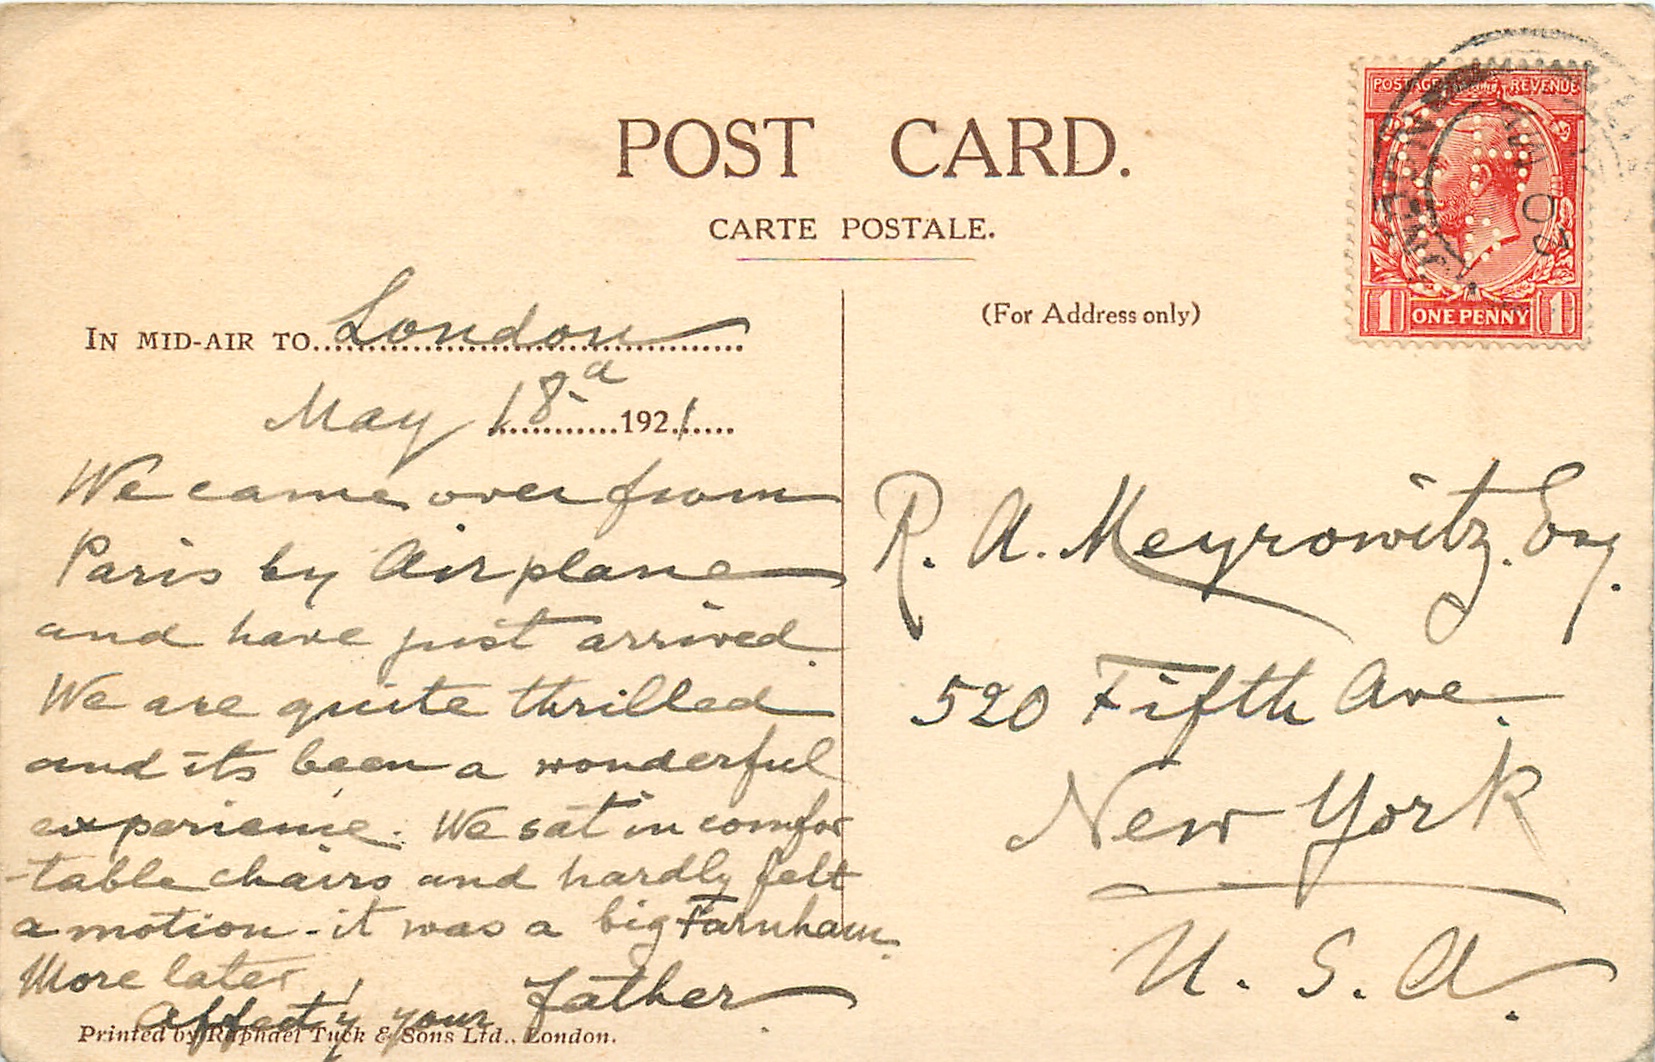 POST CARD.
CARTE POSTALE.
IN MID-AIR TO London
May 18 a 1921
We came over from
Paris by Airplane
and have just arrived.
We are quite thrilled
and its been a wonderful
experience. We sat in comfor
-table chairs and hardly felt
a motion - it was a big Farnham.
More later
Affect'y your father.
Printed by Raphael Tuck & Sons Ltd., London.
(For Address only)
R. A. Meyrowitz. Esq.
520 Fifth Ave.
New York
U. S. A.
POSTAGE REVENUE
1 ONE PENNY 1